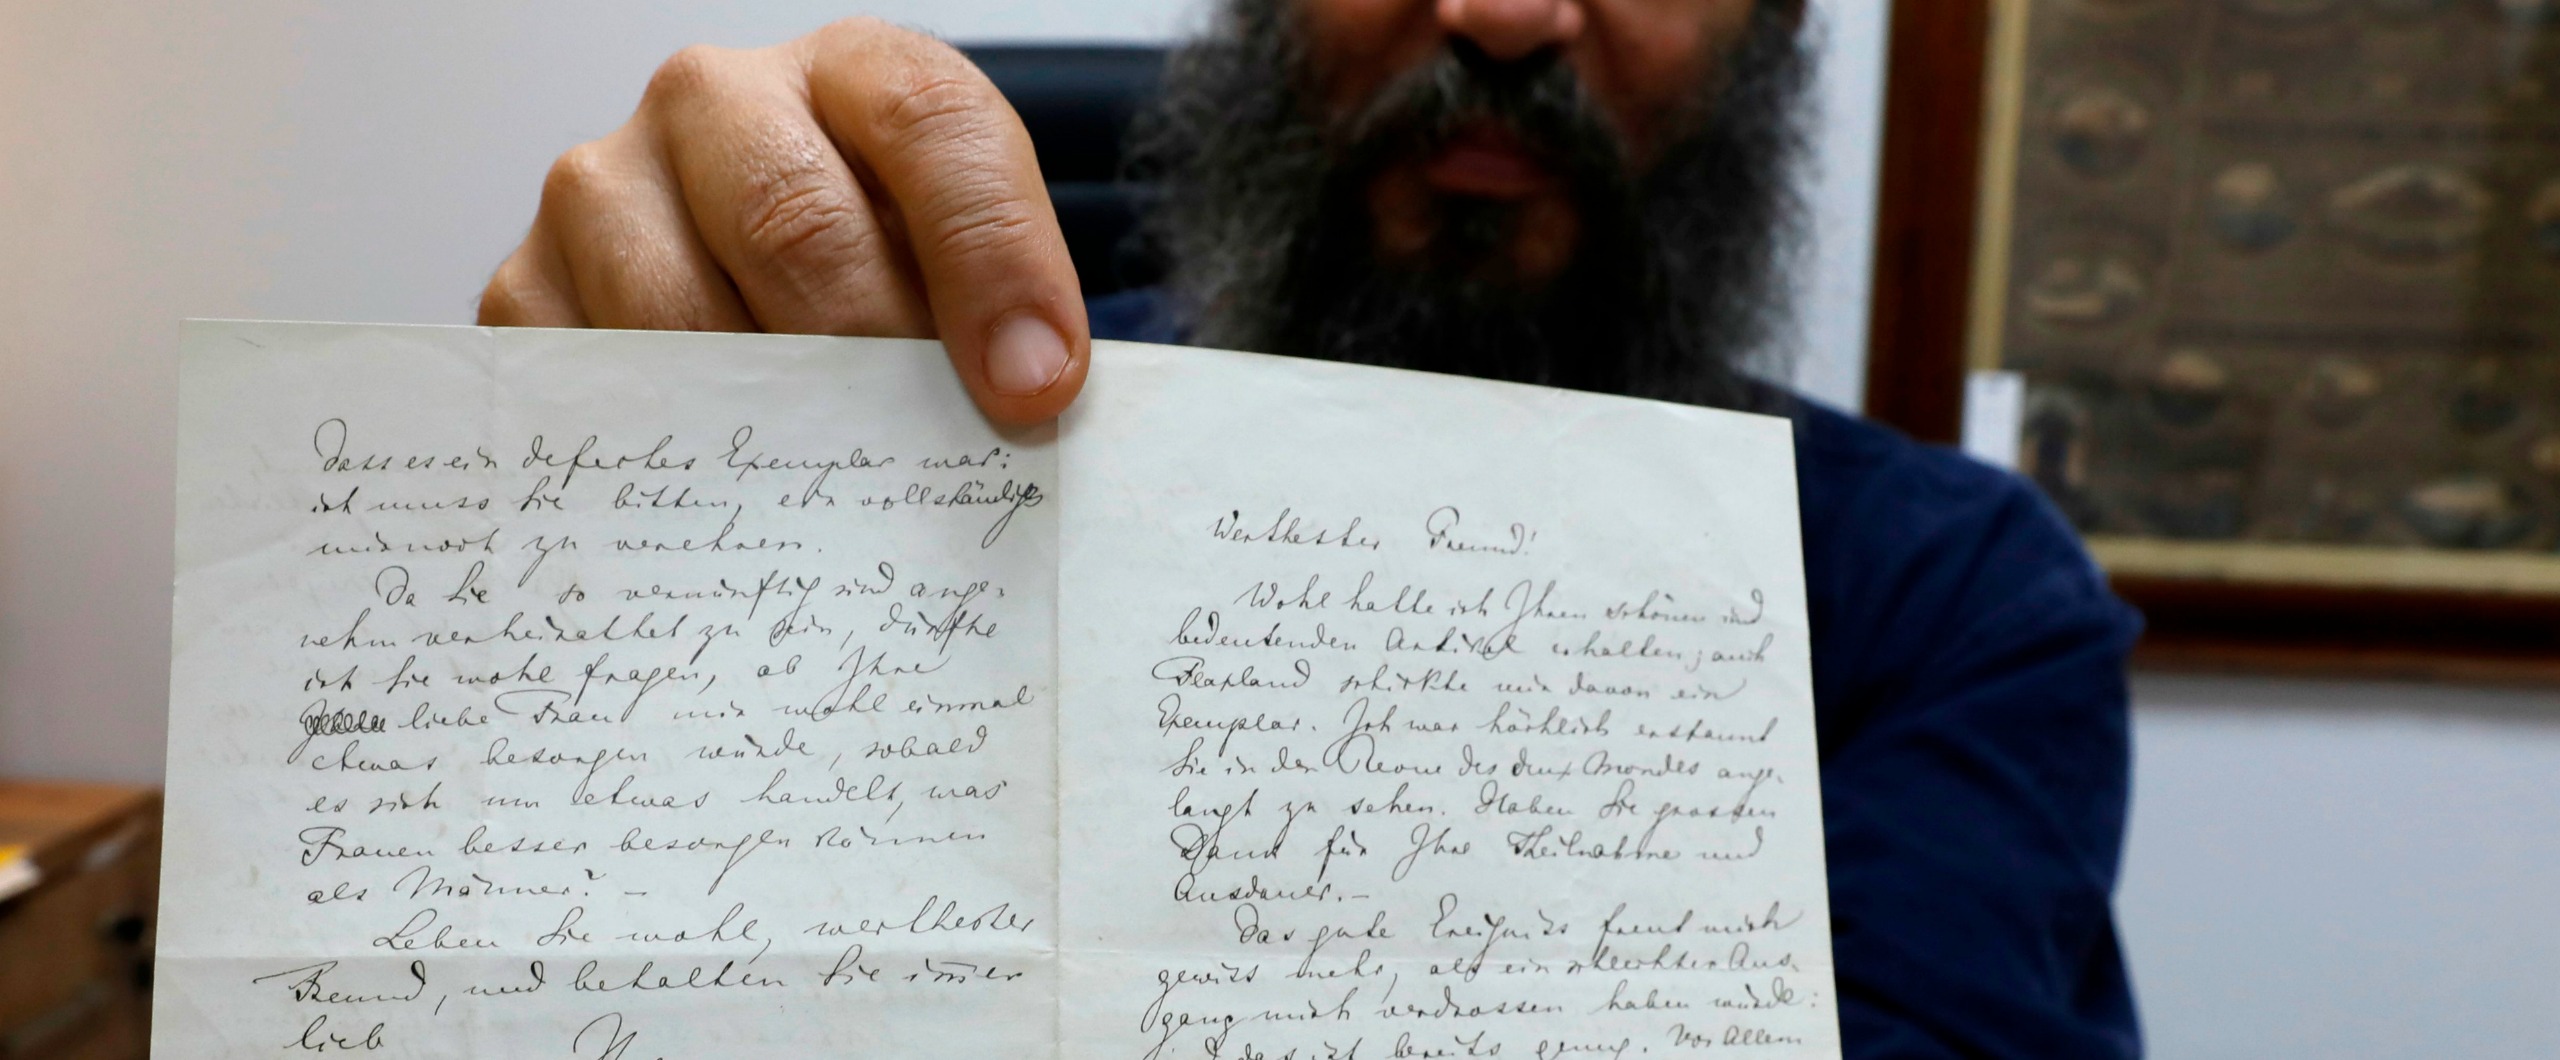 dass es ein defectes Exemplar war:
ich muss Sie bitten, ein vollständiges
mir noch zu verehren.
Da Sie so vernünftig sind ange-
nehm verheirathet zu sein, dürfte
ich Sie wohl fragen, ob Ihre
liebe Frau mir wohl einmal
etwas besorgen würde, sobald
es sich um etwas handelt, was
Frauen besser besorgen können
als Männer? —
Leben Sie wohl, werthester
Freund, und behalten Sie im̅er
lieb
Werthester Freund!
Wohl hatte ich Ihren schönen und
bedeutenden Artikel erhalten; auch
Flaxland schickte mir davon ein
Exemplar. Ich war höchlich erstaunt
Sie in der Revue des deux Mondes ange-
langt zu sehen. Haben Sie grossen
Dank für Ihre Theilnahme und
Ausdauer. —
Das gute Ereigniss freut mich
gewiss mehr, als ein schlechter Aus-
gang mich verdrossen haben würde:
das ist bereits genug. Vor Allem